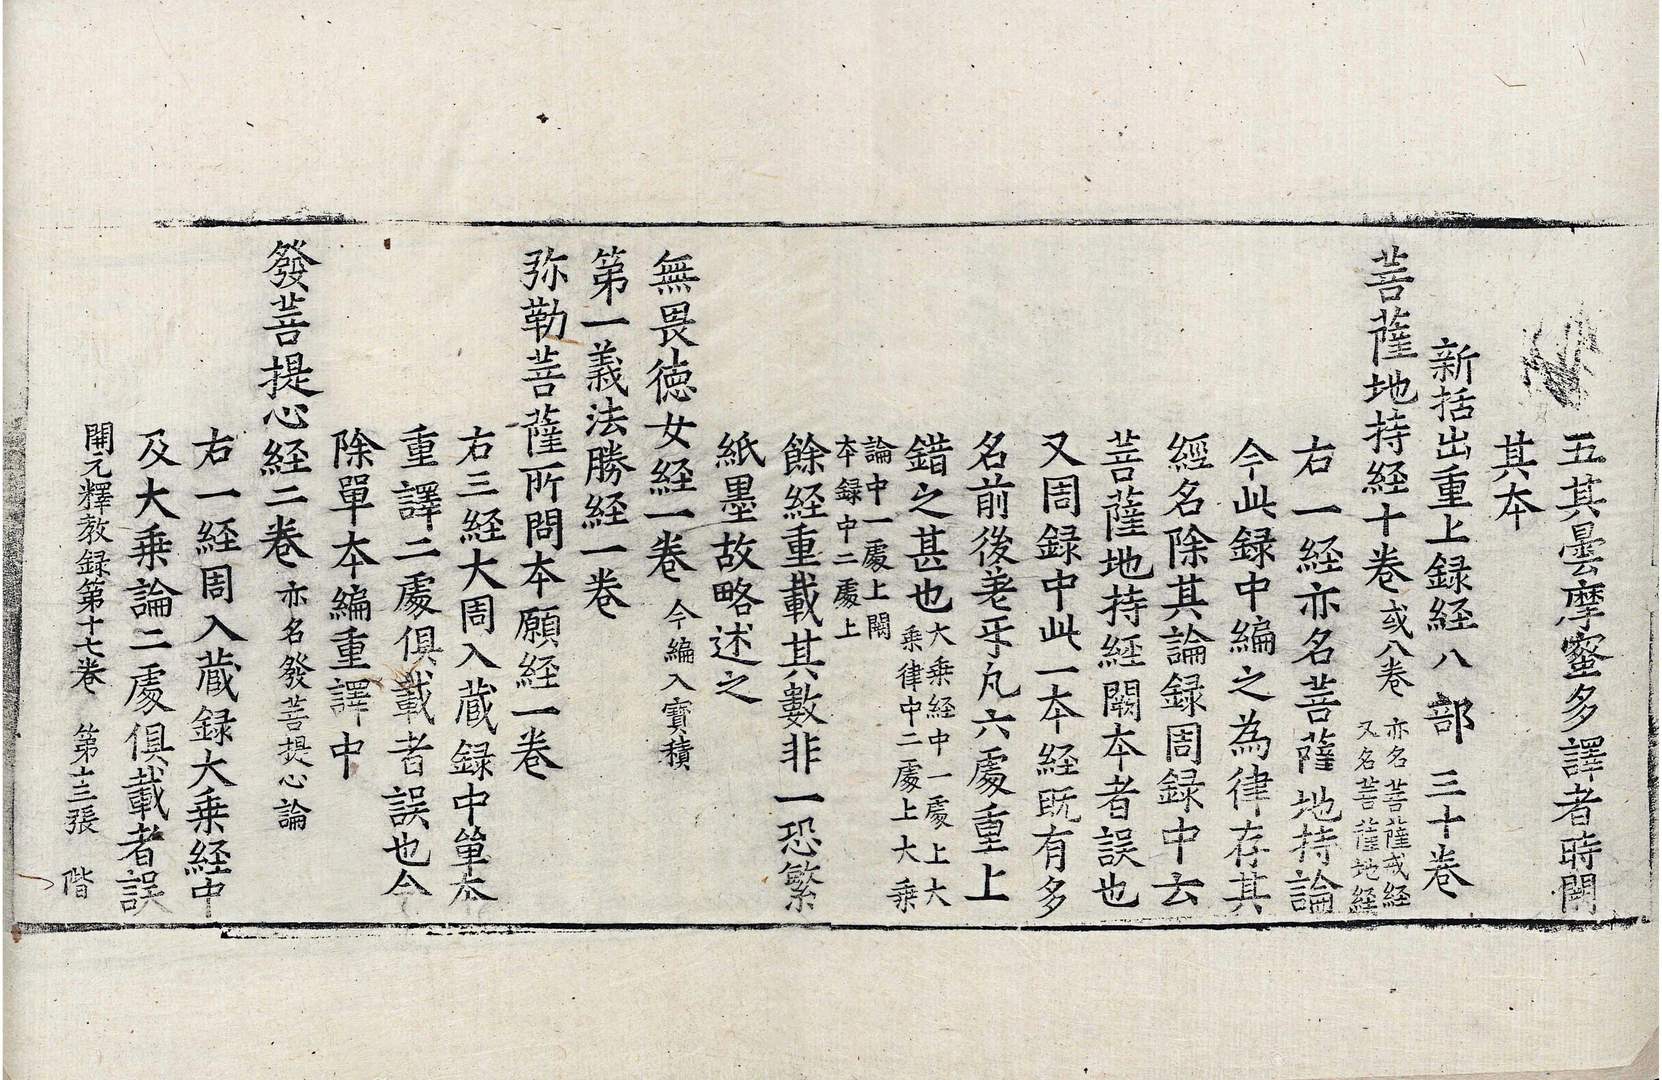 五其曇摩蜜多譯者時闕
其本
新括出重上録経八部三十卷
菩薩地持経十卷或八卷亦名菩薩戒経又名菩薩地経
右一経亦名菩薩地持論
今此録中編之為律存其
經名除其論録周録中云
菩薩地持経闕本者誤也
又周録中此一本経既有多
名前後差乎凡六處重上
錯之甚也大乗経中一處上大乗律中二處上大乗
論中一處上闕本録中二處上
餘経重載其數非一恐繁
紙墨故略述之
無畏徳女経一卷今編入寶積
第一義法勝経一卷
弥勒菩薩所問本願経一卷
右三経大周入蔵録中單本
重譯二處俱載者誤也今
除單本編重譯中
發菩提心経二卷亦名發菩提心論
右一経周入蔵録大乗経中
及大乗論二處俱載者誤
開元釋教録第十七卷 第十三張 階